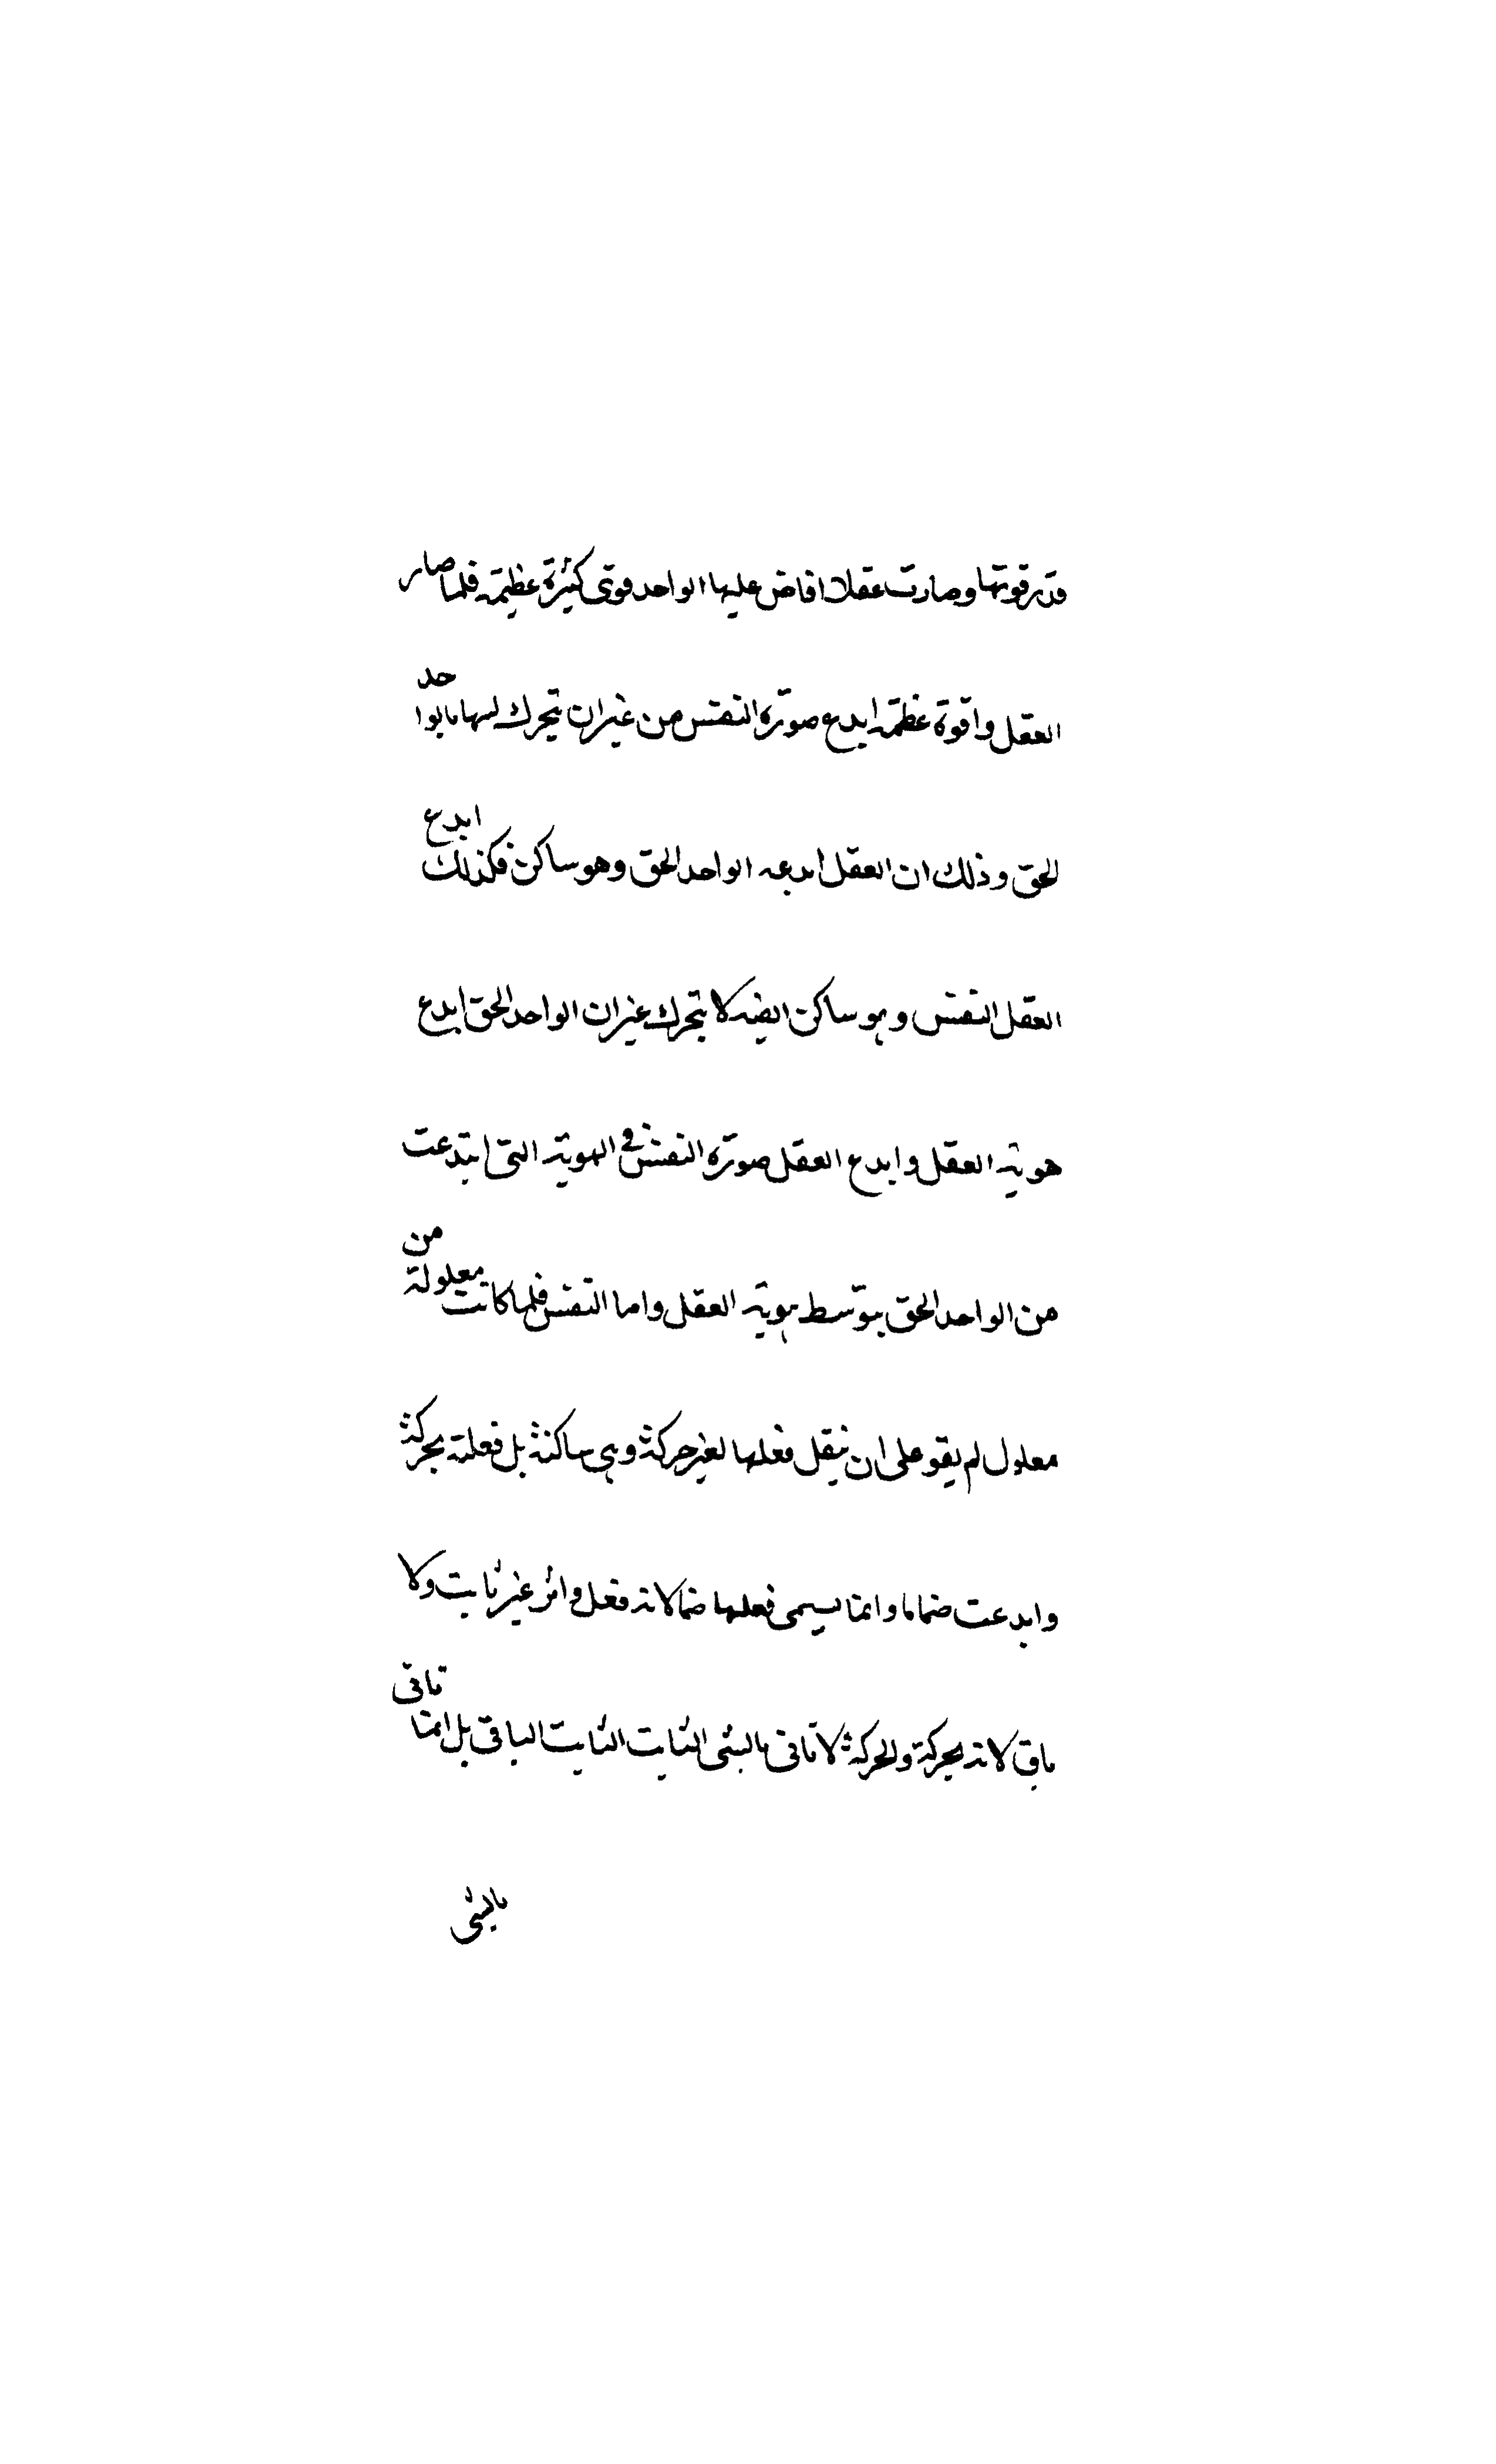 قدر قوتها وصارت عقلا افاض عليها الواحد قوى كثيرة عظيمة فلما صار
العقل ذا قوة عظمة ابدع صورة النفس من غير ان يتحرك تشبها بالواحد
الحق وذلك ان العقل ابدعه الواحد الحق وهو ساكن فكذلك ابدع
العقل النفس وهو ساكن ايضه لا يتحرك غير ان الواحد الحق ابدع
هوية العقل وابدع العقل صورة النفس فى الهوية التى ابتدعت
من الواحد الحق بتوسط هوية العقل واما النفس فلما كانت معلولة من
معلول لم يقو على ان يفعل فعلها بغير حركة وهى ساكنة بل فعلته بحركة
وابدعت صنما ما وانما يسمى فعلها صنما لانه فعل داثر غير ثابت ولا
باق لانه بحركة والحركة لا تاتى بالشئ الثابت الثابت الباقى بل انما تاتى
بالشئ